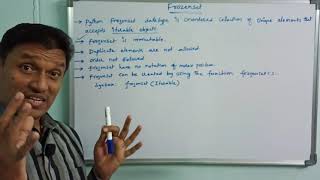 Frozenset
→ Python Frozenset datatype is unordered collection of unique elements that
accepts iterable objects.
→ Frozenset is immutable.
→ Duplicate elements are not allowed.
→ order not allowed
→ Frozenset have no notation of index position.
→ Frozenset can be created by using the function frozenset().
Syntax: frozenset(Iterable)